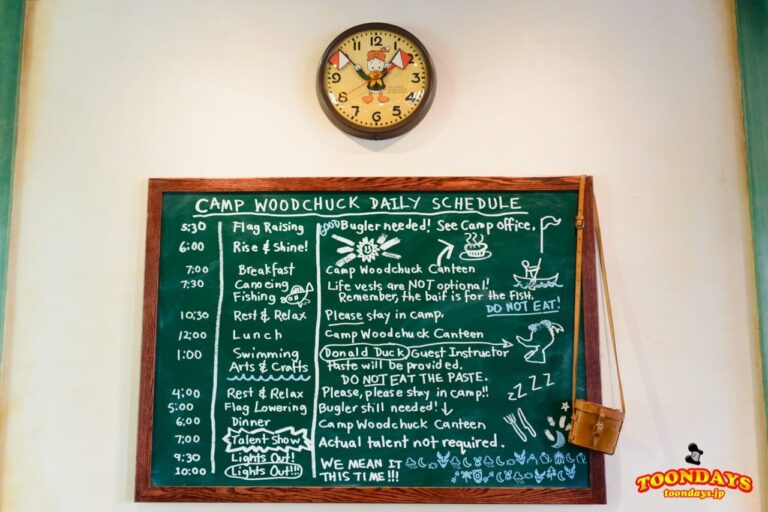 11 12 1
10 2
9 3
8 4
7 6 5
CAMP WOODCHUCK DAILY SCHEDULE
5:30 Flag Raising GOOD Bugler needed! See Camp office.
6:00 Rise & Shine!
7:00 Breakfast Camp Woodchuck Canteen
7:30 Canoeing Life vests are NOT optional!
Fishing Remember, the bait is for the fish.
DO NOT EAT!
10:30 Rest & Relax Please stay in camp.
12:00 Lunch Camp Woodchuck Canteen
1:00 Swimming Donald Duck Guest Instructor
Arts & Crafts Paste will be provided.
DO NOT EAT THE PASTE.
ZZZZ
4:00 Rest & Relax Please, please stay in camp!!
5:00 Flag Lowering Bugler still needed!
6:00 Dinner Camp Woodchuck Canteen
7:00 Talent Show Actual talent not required.
9:30 Lights Out! WE MEAN IT
10:00 Lights Out!!! THIS TIME!!!
TOONDAYS
toondays.jp